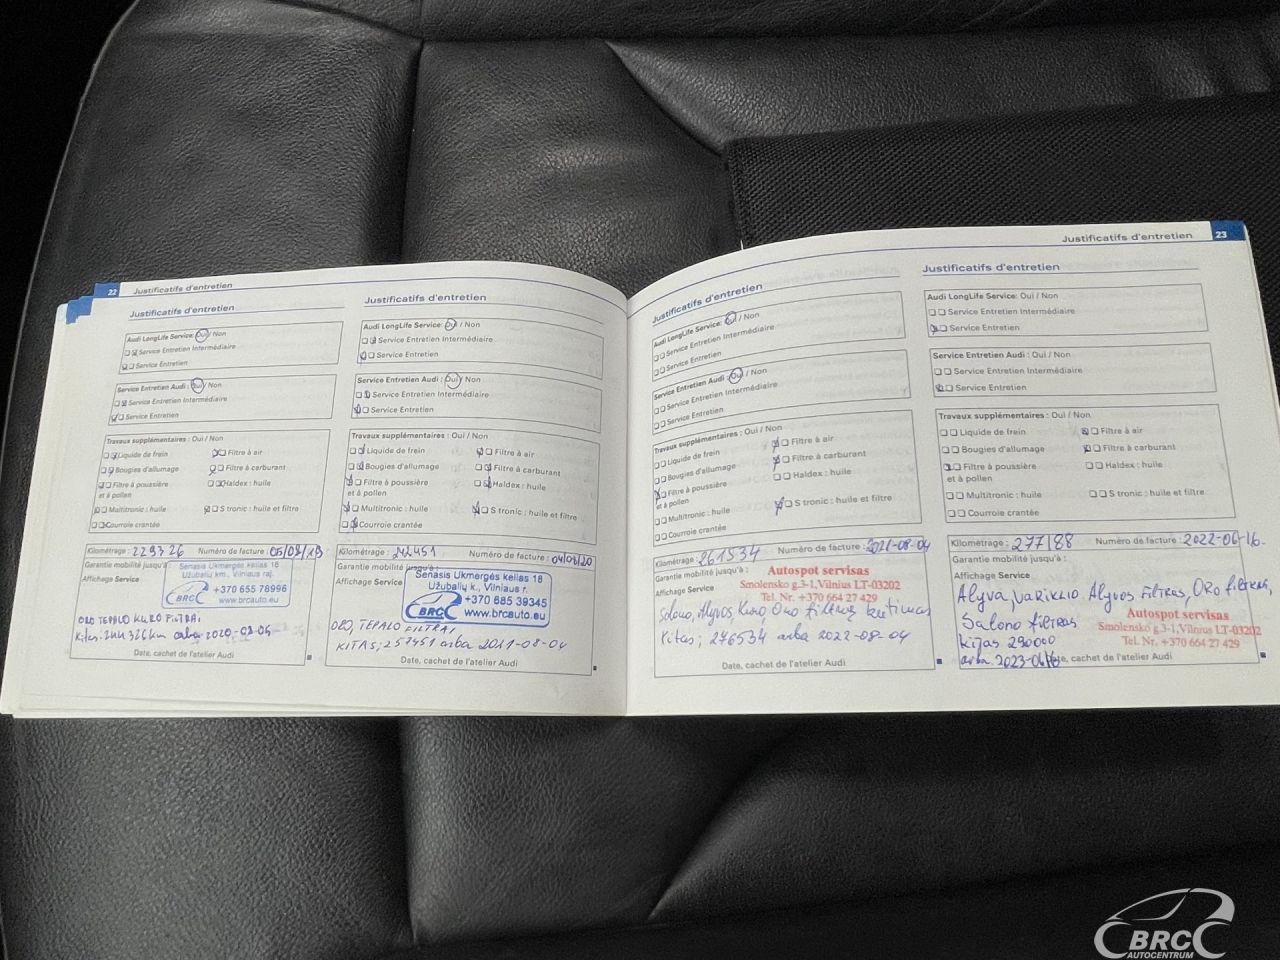 22 Justificatifs d'entretien
Justificatifs d'entretien
Audi LongLife Service: Oui / Non
Service Entretien Intermédiaire
Service Entretien
Service Entretien Audi : Oui / Non
Service Entretien Intermédiaire
Service Entretien
Travaux supplémentaires : Oui / Non
Liquide de frein
Filtre à air
Bougies d'allumage
Filtre à carburant
Filtre à poussière
et à pollen
Haldex: huile
Multitronic : huile
S tronic : huile et filtre
Courroie crantée
Kilométrage : 229326 Numéro de facture : 05/08/19
Garantie mobilité jusqu'à
Affichage Service
Senasis Ukmergės kelias 18
Užubalių km., Vilniaus raj.
BRC +370 655 78996
www.brcauto.eu
ORO TEPALO KURO FILTRAI
Kitas: 244 326 km arba 2020-08-05
Date, cachet de l'atelier Audi
Justificatifs d'entretien
Audi LongLife Service: Oui / Non
Service Entretien Intermédiaire
Service Entretien
Service Entretien Audi : Oui / Non
Service Entretien Intermédiaire
Service Entretien
Travaux supplémentaires : Oui / Non
Liquide de frein
Filtre à air
Bougies d'allumage
Filtre à carburant
Filtre à poussière
et à pollen
Haldex : huile
Multitronic : huile
S tronic : huile et filtre
Courroie crantée
Kilométrage : 242451 Numéro de facture : 04/08/20
Garantie mobilité jusqu'à :
Affichage Service
Senasis Ukmergės kelias 18
Užubalių k., Vilniaus r.
BRC +370 685 39345
www.brcauto.eu
ORO, TEPALO FILTRAI
KITAS; 257451 arba 2021-08-04
Date, cachet de l'atelier Audi
Justificatifs d'entretien
Audi LongLife Service: Oui / Non
Service Entretien Intermédiaire
Service Entretien
Service Entretien Audi : Oui / Non
Service Entretien Intermédiaire
Service Entretien
Travaux supplémentaires : Oui / Non
Liquide de frein
Filtre à air
Bougies d'allumage
Filtre à carburant
Filtre à poussière
et à pollen
Haldex : huile
Multitronic : huile
S tronic : huile et filtre
Courroie crantée
Kilométrage : 261534 Numéro de facture : 2021-08-04
Garantie mobilité jusqu'à :
Affichage Service
Autospot servisas
Smolensko g.3-1,Vilnius LT-03202
Tel. Nr. +370 664 27 429
Salono, Alyvos, Kuro, Oro filtrų keitimas
Kitas; 276534 arba 2022-08-04
Date, cachet de l'atelier Audi
Justificatifs d'entretien 23
Justificatifs d'entretien
Audi LongLife Service: Oui / Non
Service Entretien Intermédiaire
Service Entretien
Service Entretien Audi : Oui / Non
Service Entretien Intermédiaire
Service Entretien
Travaux supplémentaires : Oui / Non
Liquide de frein
Filtre à air
Bougies d'allumage
Filtre à carburant
Filtre à poussière
et à pollen
Haldex : huile
Multitronic : huile
S tronic : huile et filtre
Courroie crantée
Kilométrage : 277188 Numéro de facture : 2022-06-16.
Garantie mobilité jusqu'à :
Affichage Service
Alyva, Variklio Alyvos Filtras, Oro filtras,
Salono filtras
Autospot servisas
Smolensko g.3-1,Vilnius LT-03202
Tel. Nr. +370 664 27 429
Kitas 290000
arba 2023-06-16
cachet de l'atelier Audi
BRC
AUTOCENTRUM